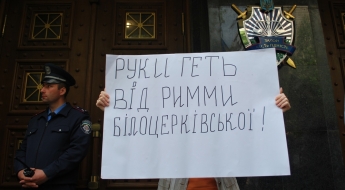 РУКИ ГЕТЬ
ВІД РИММИ
БІЛОЦЕРКІВСЬКОЇ!